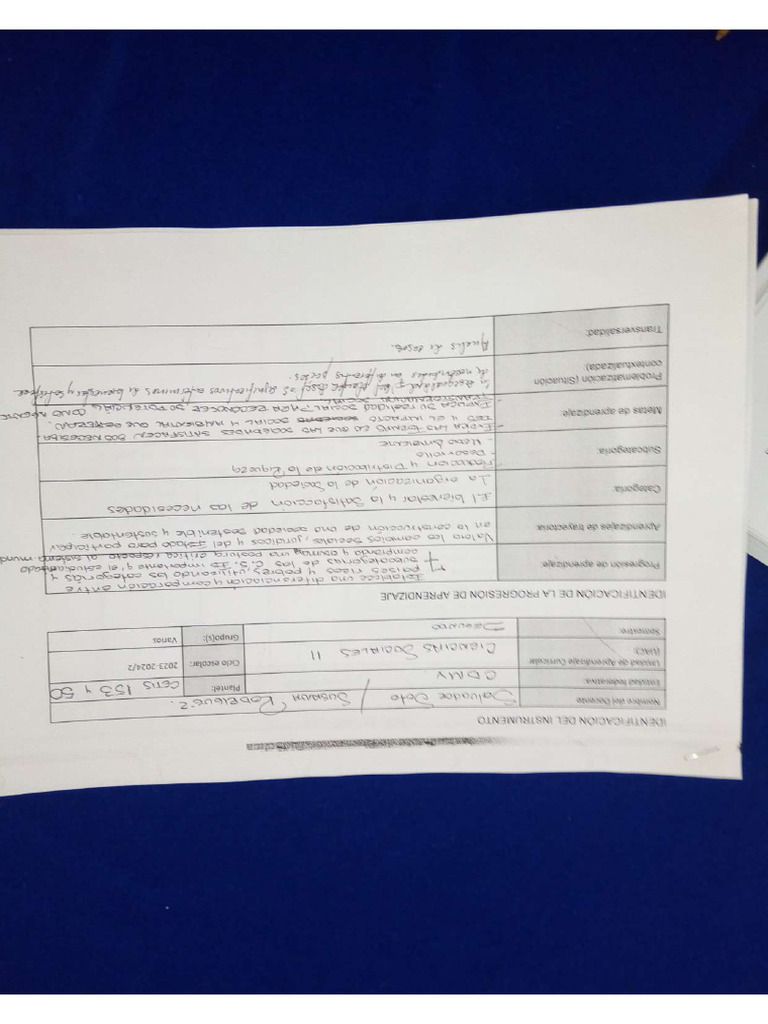 IDENTIFICACIÓN DEL INSTRUMENTO
Nombre del Docente Salvador Soto / Susana Rodríguez. Plantel: CETIS 153 y 50
Entidad federativa: CDMX
Unidad de Aprendizaje Curricular (UAC): CIENCIAS SOCIALES II Ciclo escolar: 2023-2024/2
Semestre: SEGUNDO Grupo(s): Varios
IDENTIFICACIÓN DE LA PROGRESIÓN DE APRENDIZAJE
Progresión de aprendizaje: Establece una diferenciación y comparación entre
países ricos y pobres, utilizando las categorías y
subcategorías de las C.S. Es importante q' el estudiantado
comprenda y asuma una postura crítica respecto al sistema mundo
Aprendizajes de trayectoria: Valora los cambios sociales, jurídicos y del Estado para participar
en la construcción de una sociedad sostenible y sustentable.
Categoría: -El bienestar y la satisfacción de las necesidades
-La organización de la sociedad
Subcategoría: Producción y Distribución de la Riqueza
- Desarrollo
- Medio Ambiente
Metas de aprendizaje - EXPLICA LAS FORMAS EN QUE LAS SOCIEDADES SATISFACEN SUS NECESIDA-
DES Y EL IMPACTO SOCIAL Y AMBIENTAL QUE GENERAN.
- EXPLICA SU REALIDAD SOCIAL PARA RECONOCER SU POTENCIAL COMO AGENTE
TRANSFORMACIÓN SOCIAL
Problematización (Situación contextualizada) la desigualdad
de necesidades en diferentes países.
Transversalidad: Análisis de casos.